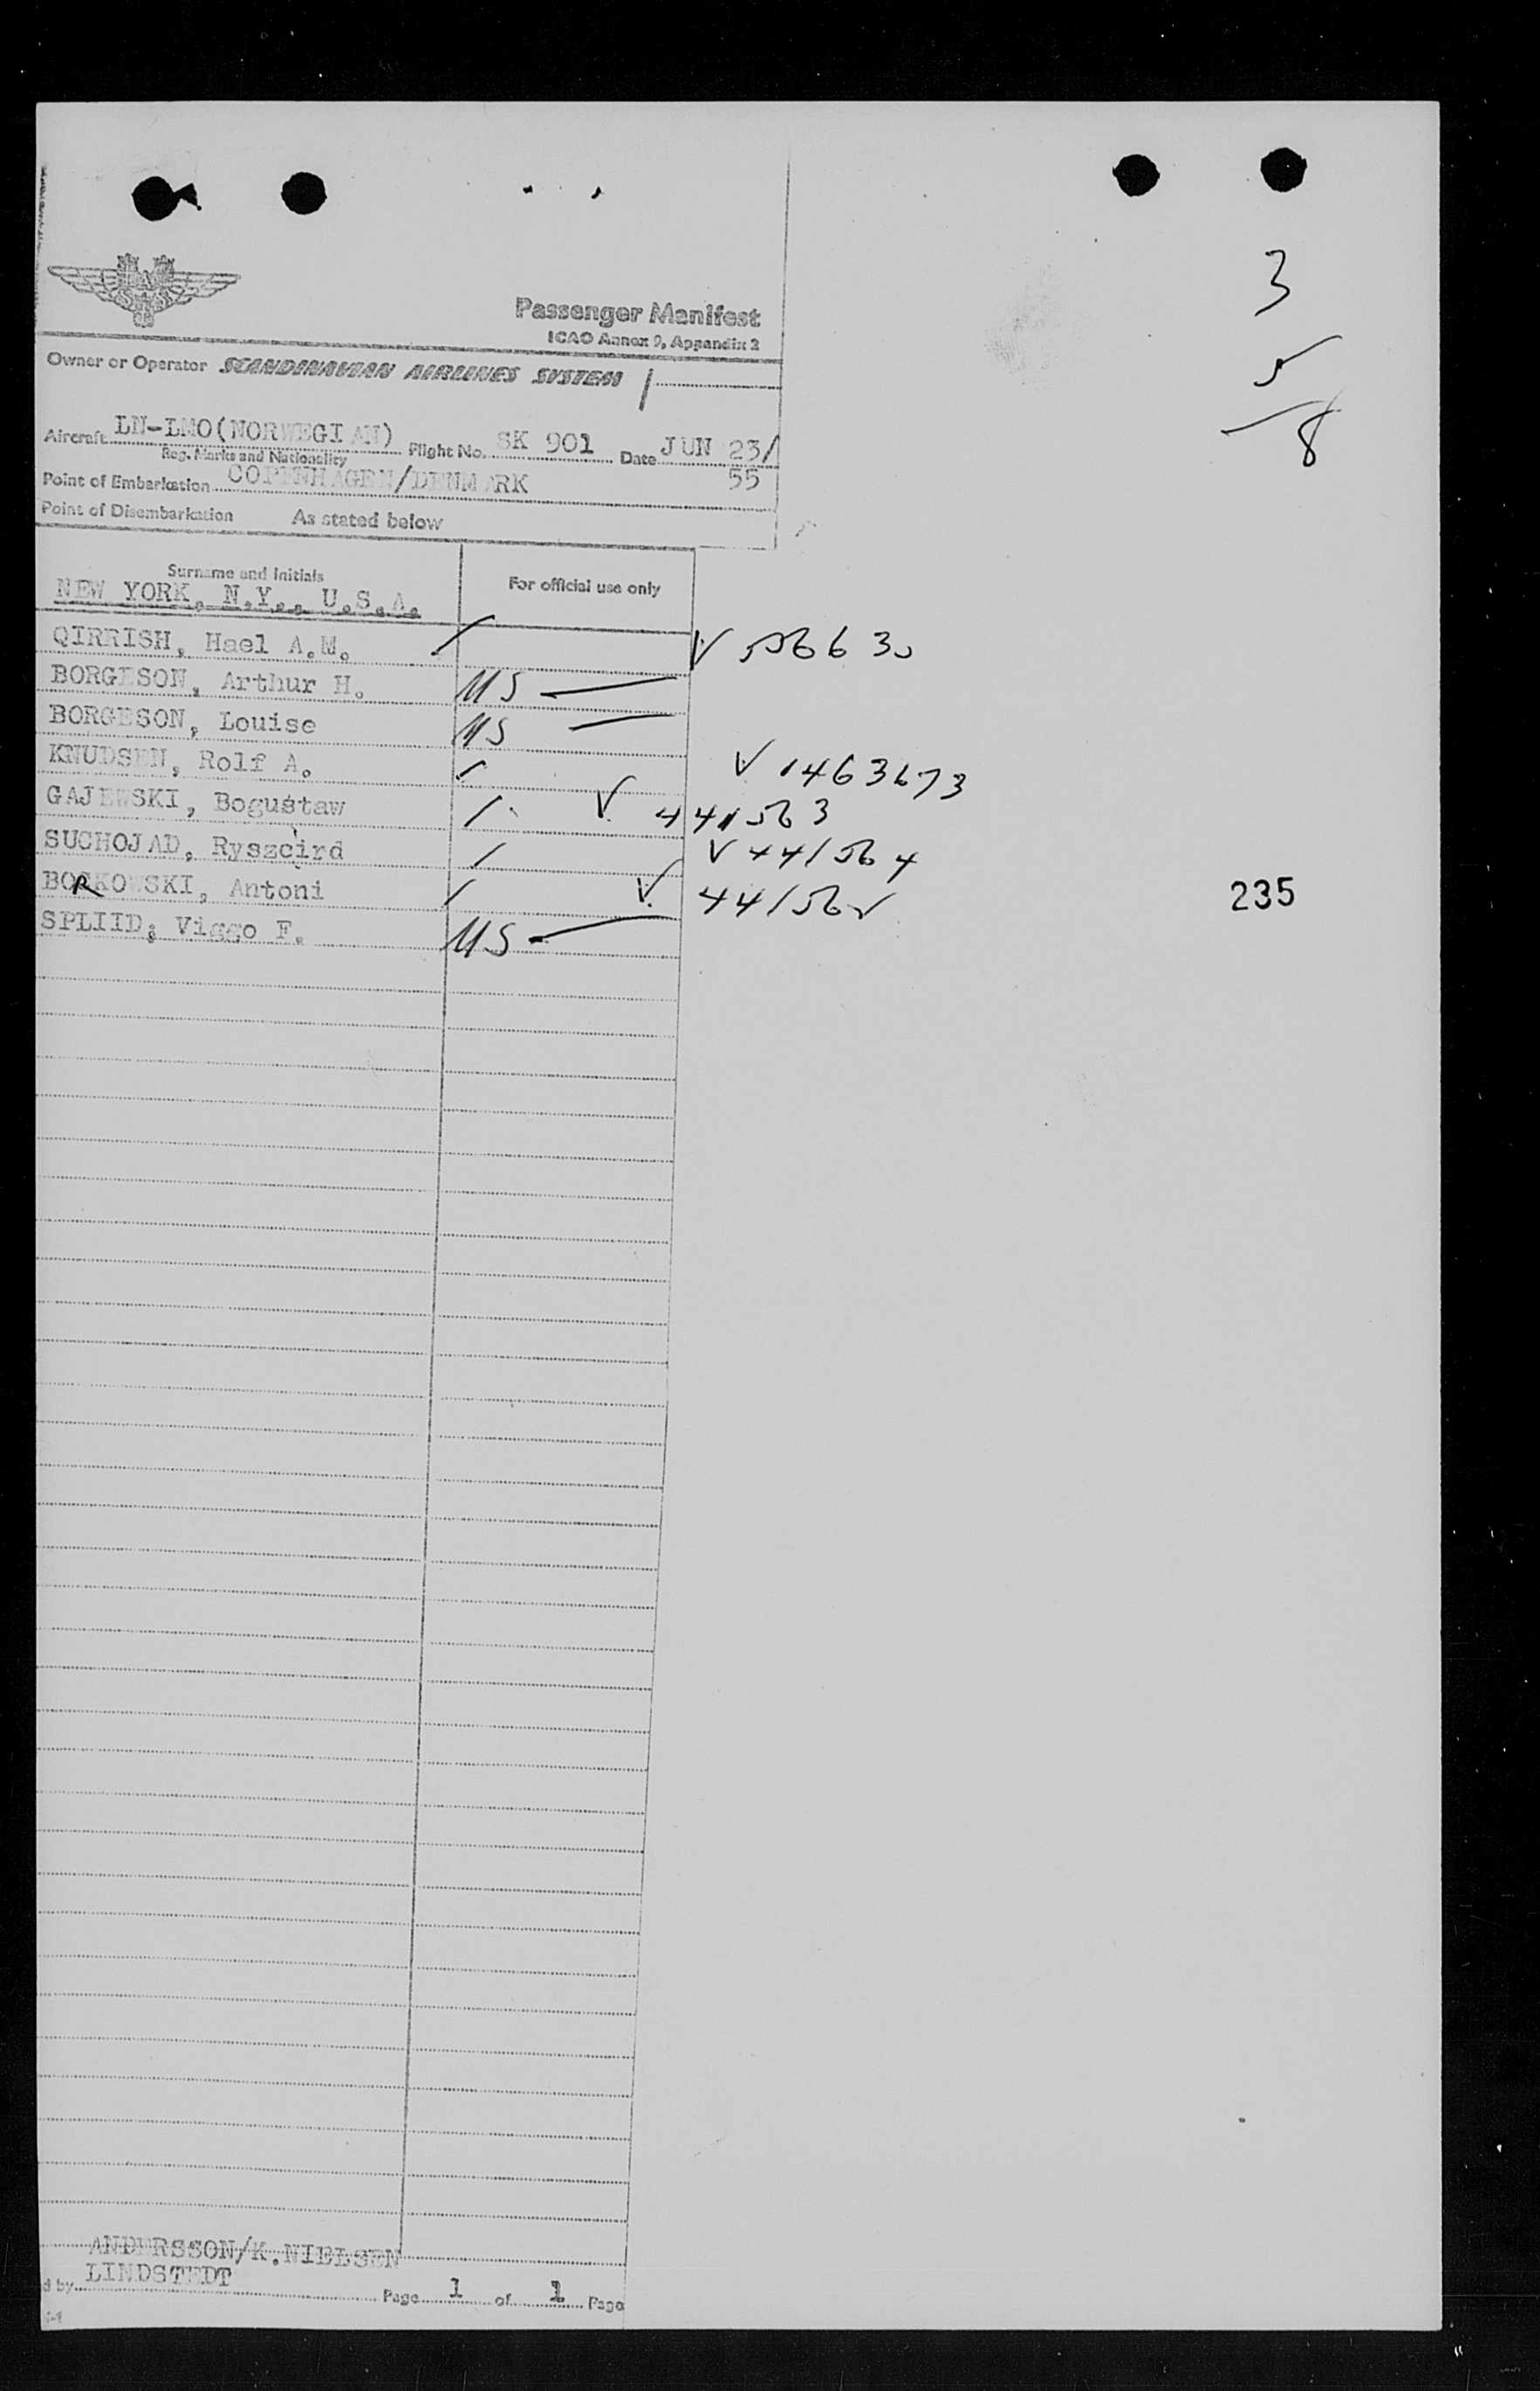 3
5
8
Passenger Manifest
ICAO Annex 9, Appendix 2
Owner or Operator SCANDINAVIAN AIRLINES SYSTEM
Aircraft LN-LMO(NORWEGIAN) Flight No. SK 901 Date JUN 23/
Reg. Marks and Nationality
Point of Embarkation COPENHAGEN/DENMARK 55
Point of Disembarkation As stated below
Surname and Initials For official use only
NEW YORK, N.Y., U.S.A.
QIRRISH, Hael A.M. V 55663
BORGESON, Arthur H. US
BORGESON, Louise US
KNUDSEN, Rolf A. V 1463673
GAJEWSKI, Bogustaw V 441563
SUCHOJAD, Ryszcird V 441564
BORKOWSKI, Antoni V 44156
235
SPLIID, Viggo F. US
ANDERSSON/K.NIELSEN
LINDSTEDT
d by Page 1 of 1 Page